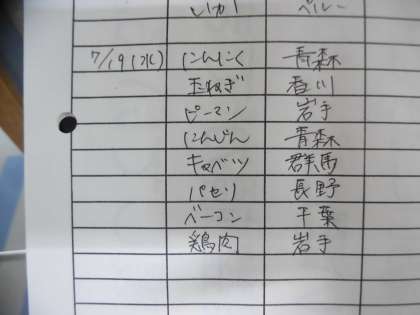 ペルー
7/19(水) にんにく 青森
玉ねぎ 香川
ピーマン 岩手
にんじん 青森
キャベツ 群馬
パセリ 長野
ベーコン 千葉
鶏肉 岩手